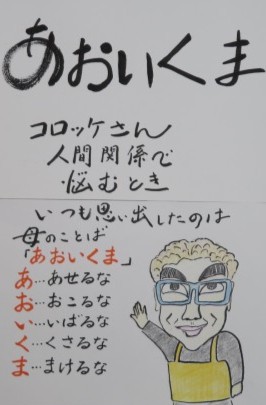 あおいくま
コロッケさん
人間関係で
悩むとき
いつも思い出したのは
母のことば
「あおいくま」
あ…あせるな
お…おこるな
い…いばるな
く…くさるな
ま…まけるな